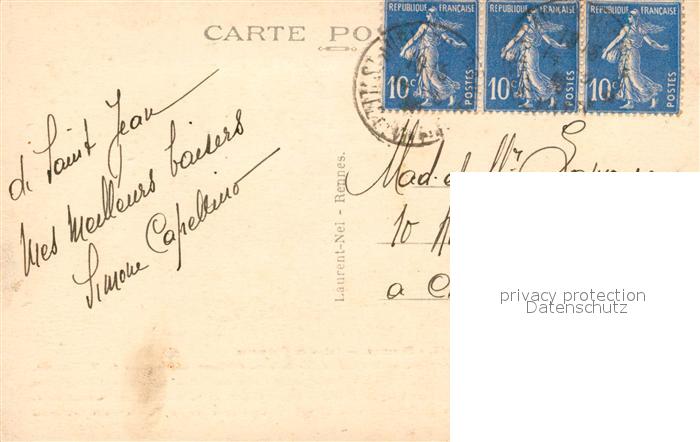 CARTE POS
REPUBLIQUE FRANÇAISE
10c
POSTES
REPUBLIQUE FRANÇAISE
10c
POSTES
REPUBLIQUE FRANÇAISE
10c
POSTES
de Saint Jean
Mes meilleurs baisers
Simone
Laurent-Nel - Rennes.
Mad. et Mr
10
a C
privacy protection
Datenschutz